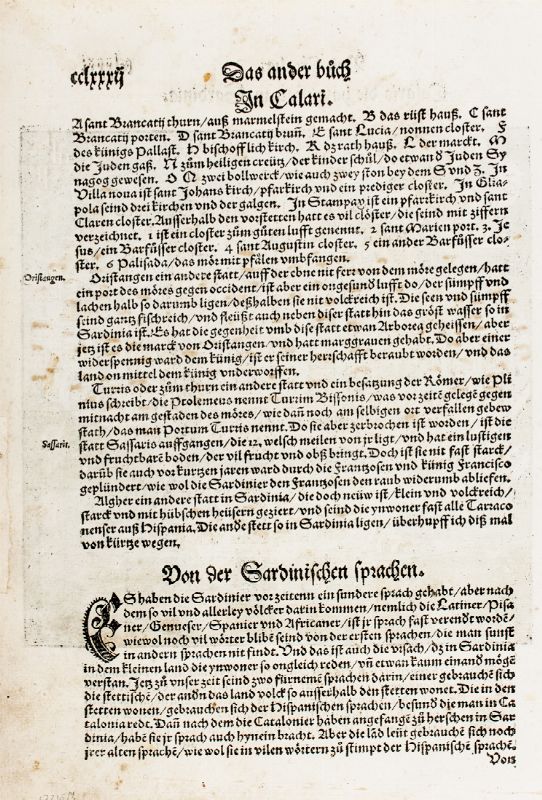 cclxxxij
Das ander bůch
In Calari.
A sant Brancatij thurn/auß marmelstein gemacht. B das rüst hauß. C sant
Brancatij porten. D sant Brancatij brun̄. E sant Lucia/nonnen closter. F
des künigs Pallast. H bischofflich kirch. K dz rath hauß. L der marckt. M
die Juden gaß. N zům heiligen creütz/der kinder schůl/do etwan ď Juden Sy
nagog gewesen. O Q zwei bollwerck/wie auch zwey ston bey dem S vnd Z. In
Villa noua ist sant Johans kirch/pfarkirch vnd ein prediger closter. In Glia-
pola seind drei kirchen vnd der galgen. In Stampay ist ein pfarkirch vnd sant
Claren closter. Ausserhalb den vorstetten hatt es vil clöster/die seind mit ziffern
verzeichnet. 1 ist ein closter zům gůten lufft genennt. 2 sant Marien port. 3. Je
sus/ein Barfüsser closter. 4 sant Augustin closter. 5 ein ander Barfüsser clo-
ster. 6 Palisada/das mör mit pfälen vmbfangen.
Oristangen.
Oristangen ein andere statt/auff der ebne nit fer von dem möre gelegen/hatt
ein port des möres gegen occident/ist aber ein ongesund lufft do/der sümpff vnd
lachen halb so darumb ligen/deßhalben sie nit volckreich ist. Die seen vnd sümpff
seind gantz fischreich/vnd fleüßt auch neben diser statt hin das gröst wasser so in
Sardinia ist. Es hat die gegenheit vmb dise statt etwan Arborea geheissen/aber
jetz ist es die marck von Oristangen/vnd hatt marggrauen gehabt. Do aber einer
widerspennig ward dem künig/ist er seiner herrschafft beraubt worden/vnd das
land on mittel dem künig vnderworffen.
Turris oder zům thurn ein andere statt vnd ein besatzung der Römer/wie Pli
nius schreibt/die Ptolemeus nennt Turrim Bissonis/was vor zeitē gelegē gegen
mitnacht am gestaden des möres/wie dañ noch am selbigen ort verfallen gebew
stath/das man Portum Turris nennt. Do sie aber zerbrochen ist worden/ist die
Sassarit.
statt Sassaris auffgangen/die 12. welsch meilen von jr ligt/vnd hat ein lustigen
vnd fruchtbarē boden/der vil frucht vnd obß bringt. Doch ist sie nit fast starck/
darūb sie auch vor kurtzen jaren ward durch die Frantzosen vnd künig Francisco
geplündert/wie wol die Sardinier den Frantzosen den raub widerumb abliefen.
Algher ein andere statt in Sardinia/die doch neüw ist/klein vnd volckreich/
starck vnd mit hübschen heüsern geziert/vnd seind die ynwoner fast alle Tarraco
nenser auß Hispania. Die andē stett so in Sardinia ligen/überhupff ich diß mal
von kürtze wegen.
Von der Sardinischen sprachen.
ES haben die Sardinier vor zeitenn ein sundere sprach gehabt/aber nach
dem so vil vnd allerley völcker darin kommen/nemlich die Latiner/Pisa
ner/Genueser/Spanier vnd Africaner/ist jr sprach fast verendt wordē/
wiewol noch vil wörter blibē seind von der ersten sprachen/die man sunst
in andern sprachen nit findt. Vnd das ist auch die vrsach/dz in Sardinia
in dem kleinen land die ynwoner so ongleich reden/vn̄ etwan kaum einand mögē
verstan. Jetz zů vnser zeit seind zwo fürnemē sprachen darin/einer gebrauchē sich
die stettischē/der andn das land volck so ausserhalb den stetten wonet. Die in den
stetten wonen/gebrauchen sich der Hispanischen sprachen/besund̄ die man in Ca
talonia redt. Dañ nach dem die Catalonier haben angefangē zů herschen in Sar
dinia/habē sie jr sprach auch hynein bracht. Aber die lād leüt gebrauchē sich noch
jrer alten sprachē/wie wol sie in vilen wörtern zů stimpt der Hispanischē sprachē.
Von